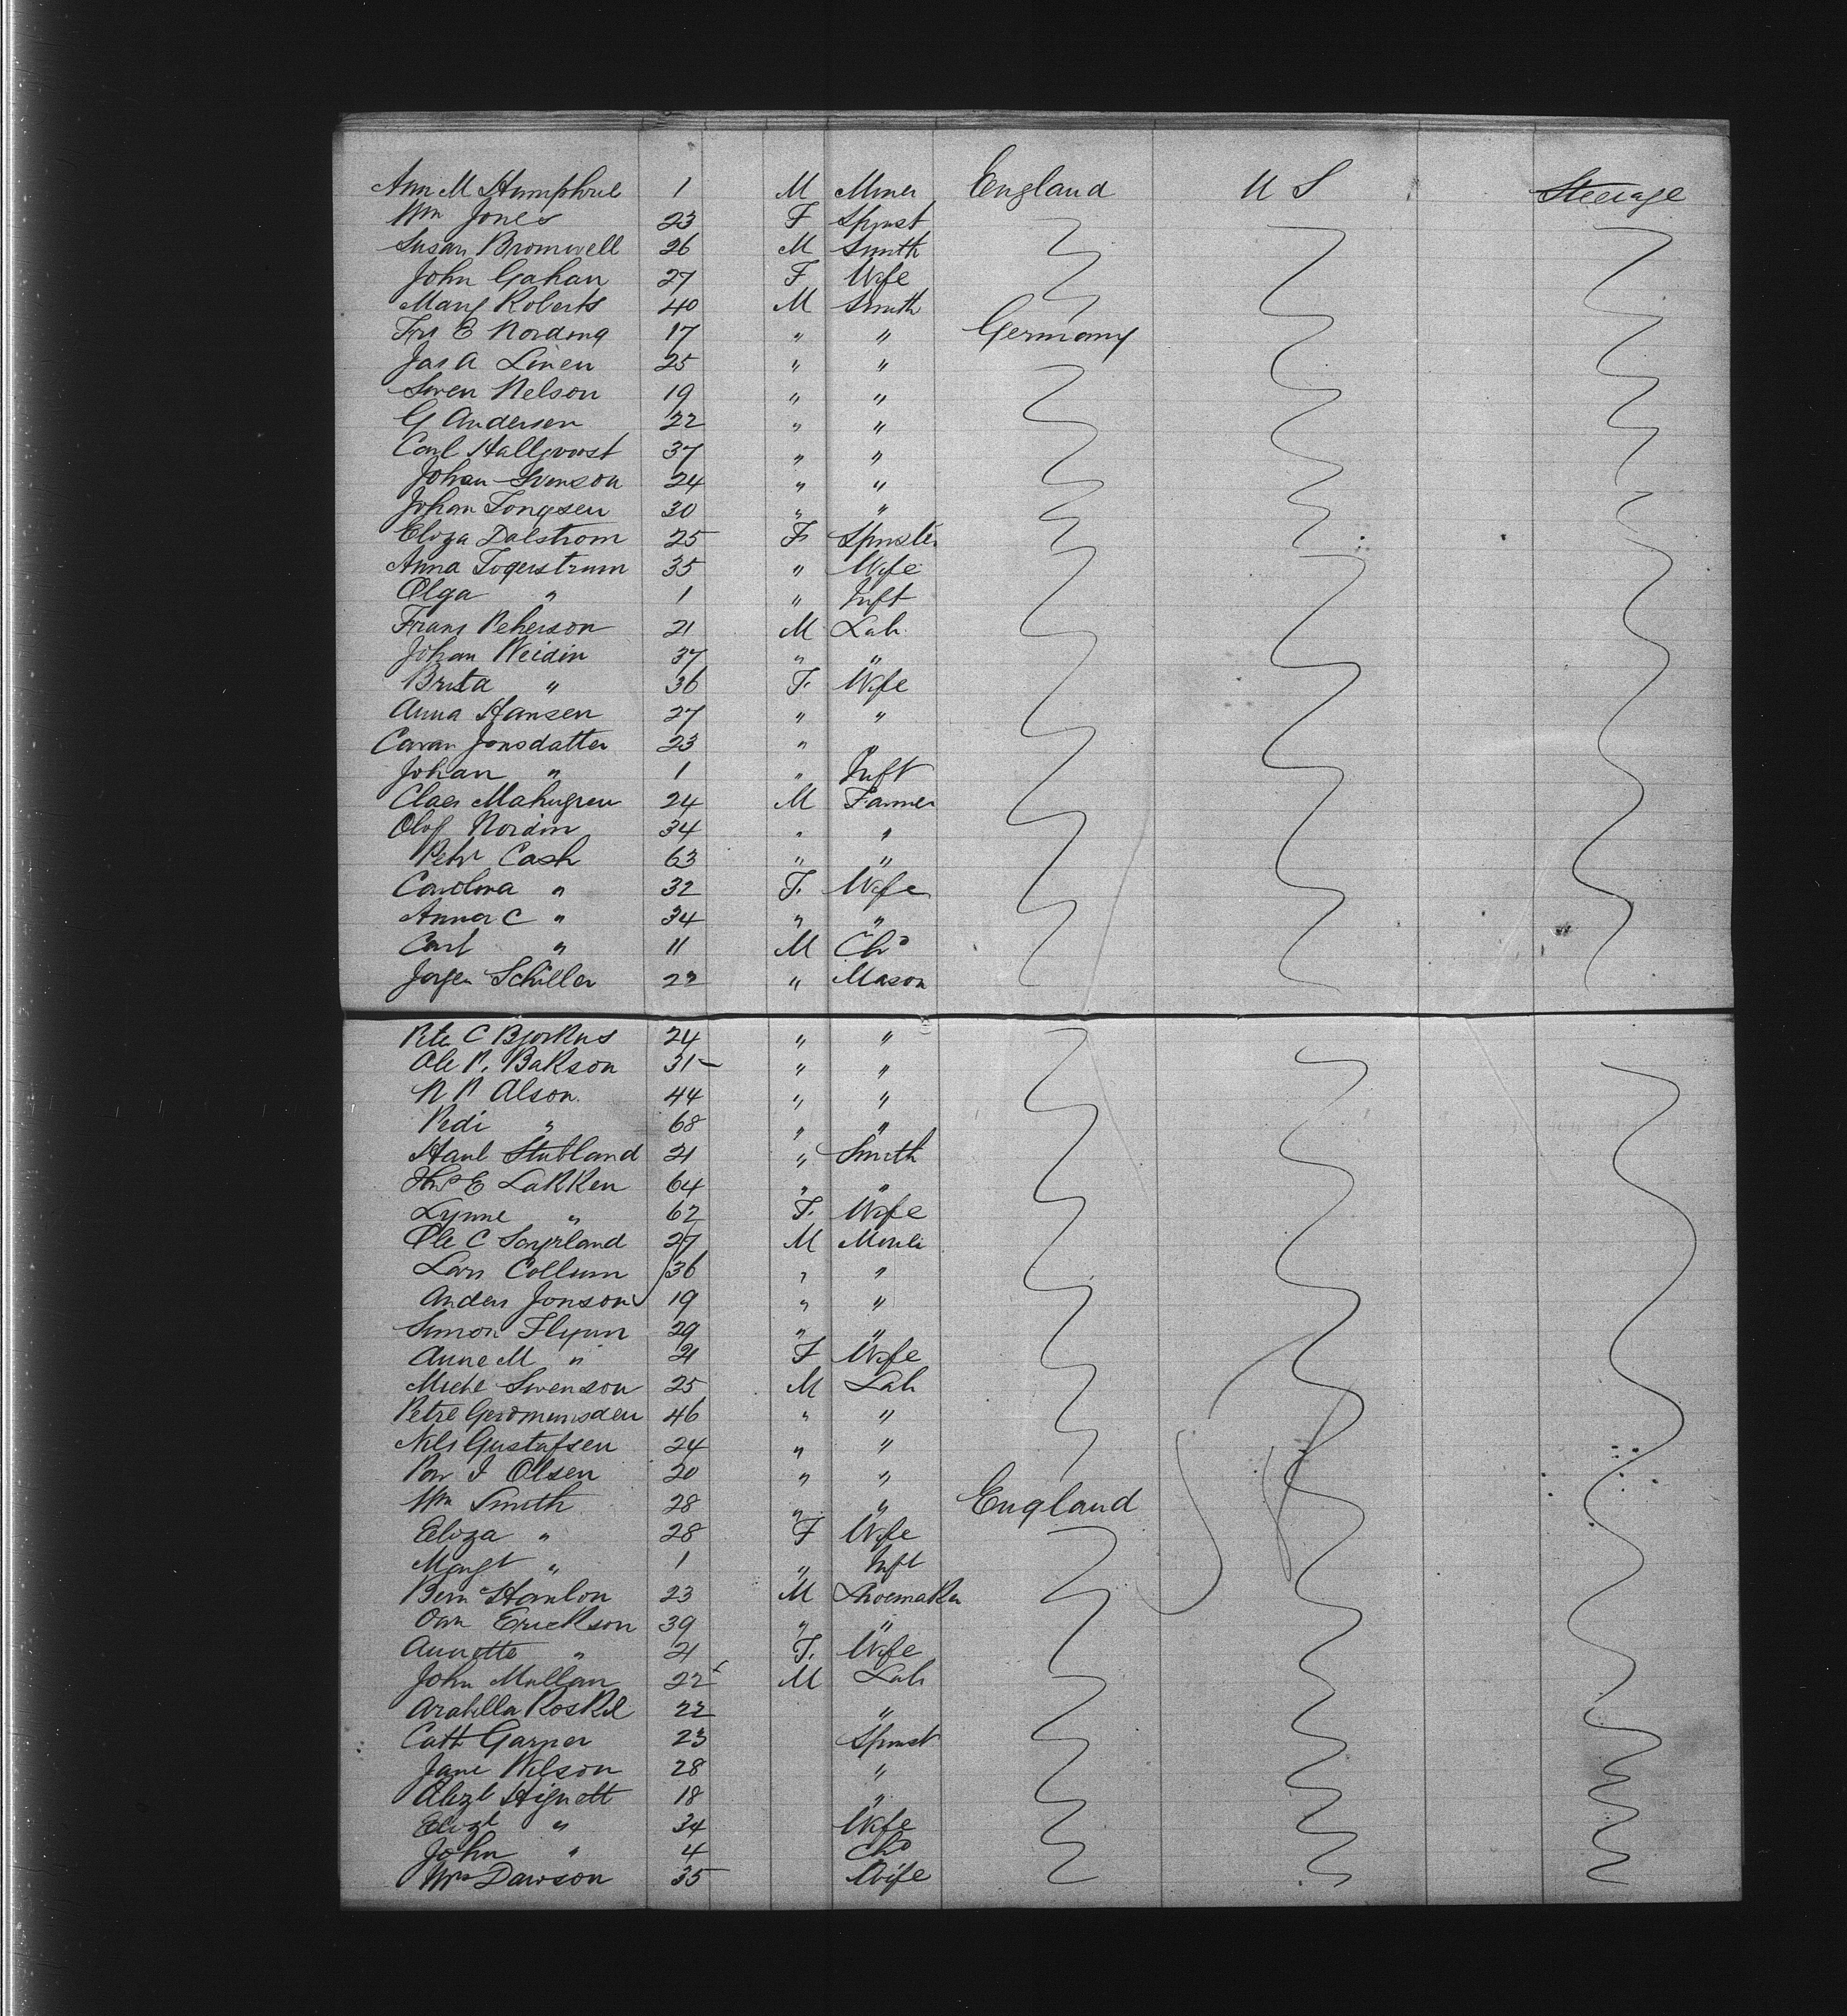 Ann M Humphrie 1 M Miner England U S Steerage
Wm Jones 23 F Spinst
Susan Bromwell 26 M Smith
John Gahan 27 F Wife
Mary Roberts 40 M Smith
Frs E Nording 17 " " Germany
Jas A Linen 25 " "
Swen Nelson 19 " "
G Andersen 22 " "
Carl Hallqvorst 37 " "
Johan Svenson 24 " "
Johan Tongsen 30 " "
Eliza Dalstrom 25 F Spinster
Anna Togerstrum 35 " Wife
Olga " 1 " Inft
Frans Peherson 21 M Lab
Johan Weidin 37 " "
Brita " 36 F. Wife
Anna Hansen 27 " "
Caran Jonsdatter 23 " "
Johan " 1 " Inft
Claes Mahngren 24 M Farmer
Olof Nordin 34 " "
Petr Cash 63 " "
Carolina " 32 F. Wife
Anna C " 34 " "
Carl " 11 M Chd
Jorgen Schiller 22 " Mason
Pete C Bjorkus 24 " "
Ole P. Bakson 31 " "
N P Alson 44 " "
Pedi " 68 " "
Haul Stutland 21 " Smith
Thos E Lakken 64 " "
Lynne " 62 F. Wife
Ole C Songrland 27 M
Lars Collum 36 " "
Anders Jonson 19 " "
Simon Flynn 29 " "
Anne M " 21 F Wife
Michl Swenson 25 M Lab
Petre Gerdmunsden 46 " "
Nils Gustafsen 24 " "
Per J Olsen 20 " "
Wm Smith 28 " " England
Eliza " 28 F Wife
Margt " 1 " Inft
Bern Hanlon 23 M Shoemaker
Oan Erickson 39 " "
Annette " 21 F. Wife
John Mullan 22 M Lab
Arabella Roskel 22 "
Cath Garner 23 Spinst
Jane Wilson 28 "
Alizt Hignett 18 "
Elizt " 34 Wife
John " 4 Chd
Mrs Dawson 35 Wife